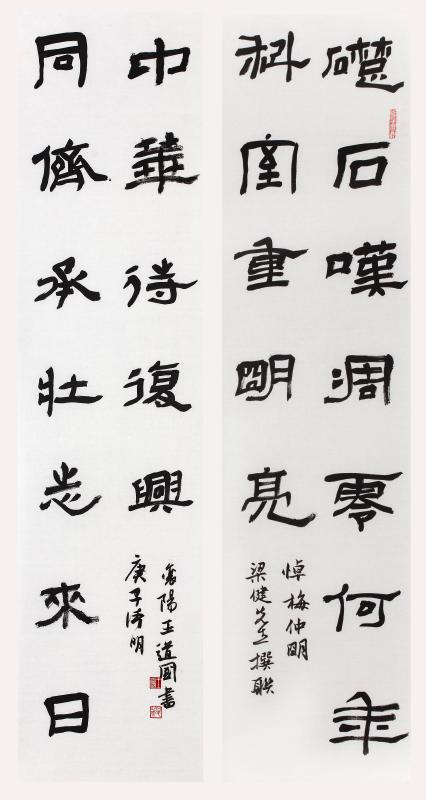 礎石嘆凋零何年
科室重明亮
悼梅仲明
梁健先生撰联
同儕承壯志來日
中華待復興
庚子清明
陽王道國書